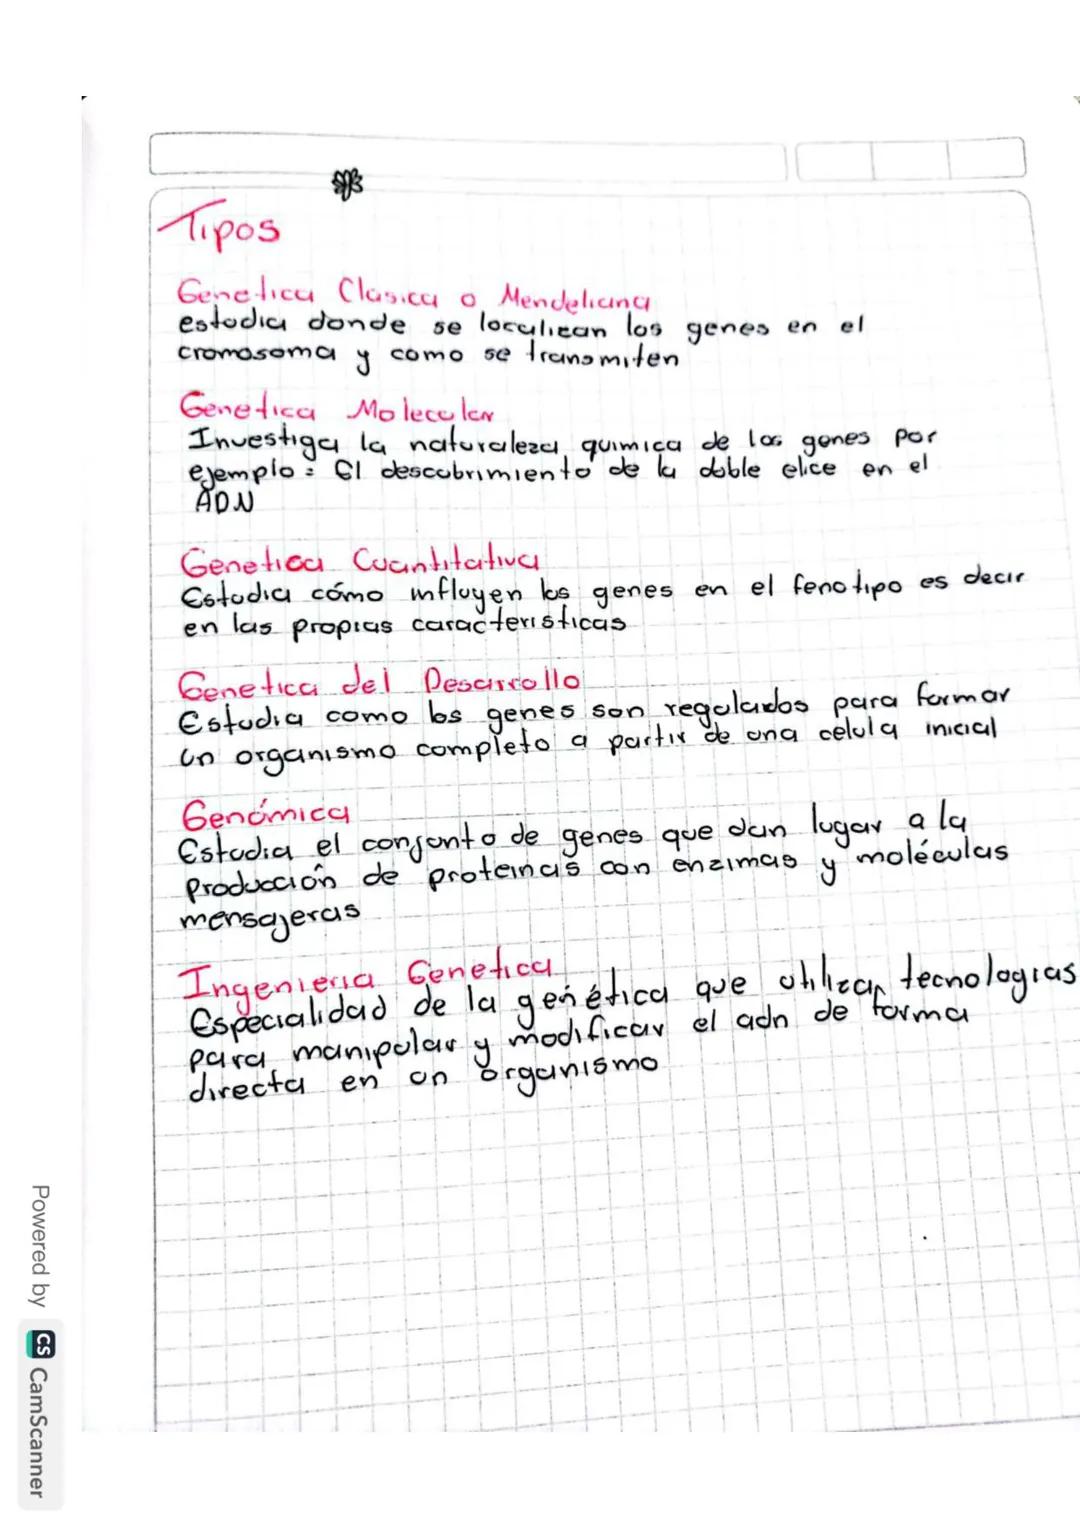 Tipos
Genetica Clasica o Mendeliana
estudia donde se localizan los genes en el
cromosoma y como se transmiten
Genetica Molecular
Investiga la naturaleza quimica de los genes por
ejemplo: El descubrimiento de la doble elice en el
ADN
Genetica Cuantitativa
Estudia cómo influyen los genes en el fenotipo es decir
en las propias caracteristicas
Genetica del Desarrollo
Estudia como los genes son regulados para formar
un organismo completo a partir de una celula inicial
Genómica
Estudia el conjunto de genes que dan lugar a la
producción de proteinas con enzimas y moléculas
mensajeras
Ingenieria Genetica
Especialidad de la genética que utilizan tecnologias
para manipular y modificar el adn de forma
directa en un organismo
Powered by CS CamScanner